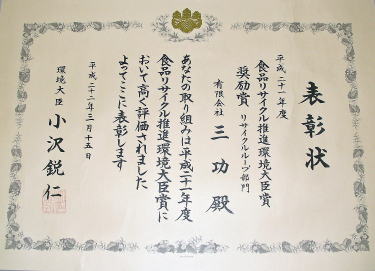 表彰状
平成二十一年度
食品リサイクル推進環境大臣賞
奨励賞 リサイクルループ部門
有限会社 三功 殿
あなたの取り組みは平成二十一年度
食品リサイクル推進環境大臣賞に
おいて高く評価されました
よってここに表彰します
平成二十二年三月十五日
環境大臣 小沢鋭仁